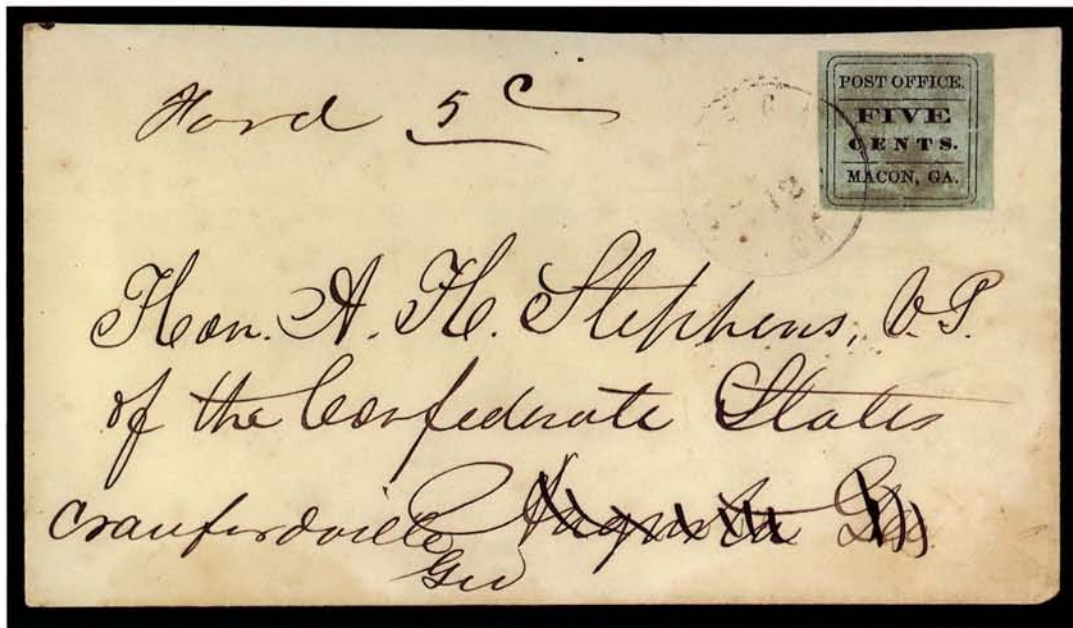 Ford 5 C
POST OFFICE.
FIVE
CENTS.
MACON, GA.
12
Hon. A. H. Stephens, V. P.
of the Confederate States
Crawfordville Augusta Ga.
Geo